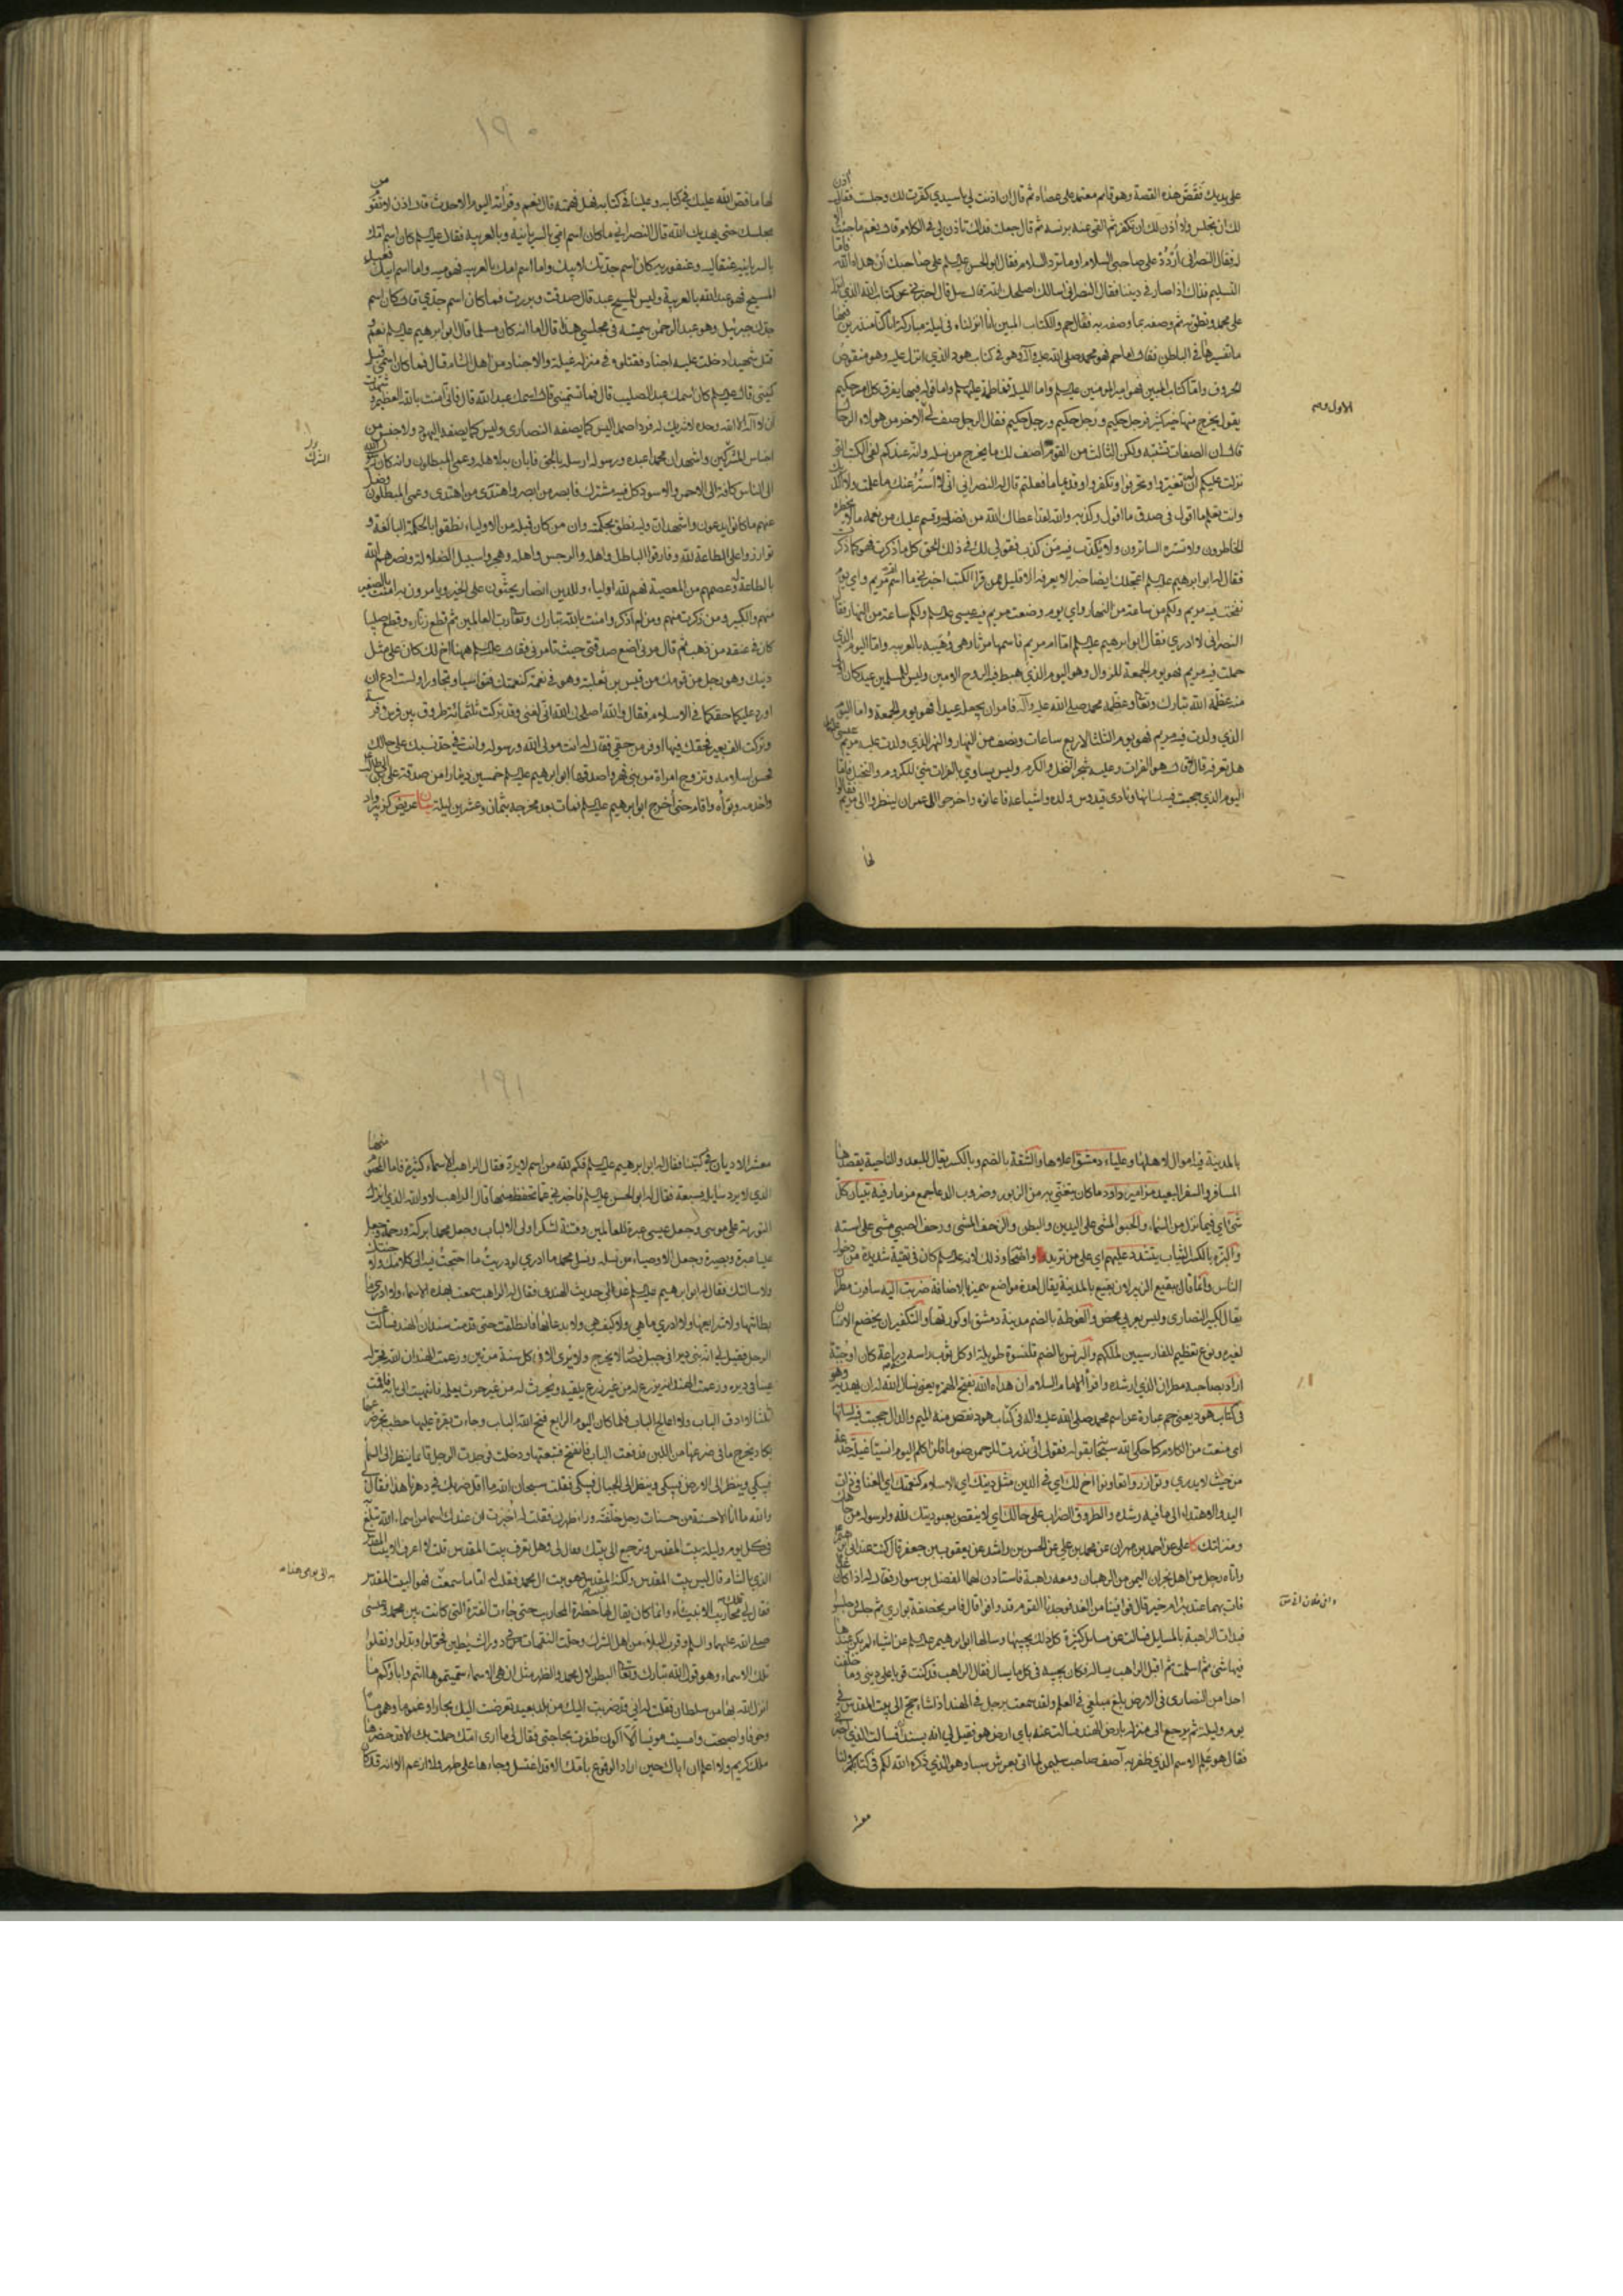 على يديك نقص هذه القصة وهو قائم معتمد على عصاه ثم قال ان اذنت لي يا سيدي كفرت لك وجلست فقال اذن
لك ان تجلس ولا اذن لك ان تكفر ثم القى عنه برنسه ثم قال جعلت فداك تاذن لي في الكلام قال نعم ما جئت الا
له فقال النصراني اردد على صاحبي السلام او ما ترد السلام فقال ابو الحسن على صاحبك ان هداه الله فاما
التسليم فذاك اذا صار في ديننا فقال النصراني اسالك اصلحك الله قال سل قال اخبرني عن كتاب الله الذي انزل
على محمد ونطق به ثم وصفه بما وصفه به فقال حم والكتاب المبين انا انزلناه في ليلة مباركة انا كنا منذرين فيها
ما تفسيرها في الباطن فقال اما حم فهو محمد صلى الله عليه وآله وهو في كتاب هود الذي انزل عليه وهو منقوص
الحروف واما كتاب المبين فهو امير المؤمنين واما الليلة ففاطمة عليها واما قوله فيها يفرق كل امر حكيم
يقول يخرج منها خير كثير فرجل حكيم ورجل حكيم ورجل حكيم فقال الرجل صف لي الاخر من هؤلاء الرجال
الاول و
قال ان الصفات تشتبه ولكن الثالث من القوم اصف لك ما يخرج من نسله وانه عندكم لفي الكتب التي
نزلت عليكم ان لم تغيروا وتحرفوا وتكفروا وقديما ما فعلتم قال له النصراني اني لا استر عنك ما علمت ولا اكذبك
وانت تعلم ما اقول في صدق ما اقول وكذبه والله لقد اعطاك الله من فضله وقسم عليك من نعمه ما لا يخطره
الخاطرون ولا تستره الساترون ولا يكذب فيه من كذب فقولي لك في ذلك الحق كل ما ذكرت فهو كما ذكرت
فقال له ابو ابرهيم اعجلك ايضا خبرا لا يعرفه الا قليل ممن قرا الكتب اخبرني ما اسم ام مريم واي يوم
نفخت فيه مريم ولكم من ساعة من النهار واي يوم وضعت مريم فيه عيسى ولكم ساعة من النهار فقال
النصراني لا ادري فقال ابو ابرهيم اما ام مريم فاسمها مرثا وهي وهيبة بالعربيه واما اليوم الذي
حملت فيه مريم فهو يوم الجمعة للزوال وهو اليوم الذي هبط فيه الروح الامين وليس للمسلمين عيد كان اولى
منه عظمه الله تبارك وتعالى وعظمه محمد صلى الله عليه وآله فامر ان يجعل عيدا فهو يوم الجمعة واما اليوم
الذي ولدت فيه مريم فهو يوم الثلثا لاربع ساعات ونصف من النهار والنهر الذي ولدت عليه مريم عيسى
هل تعرفه قال لا قال هو الفرات وعليه شجر النخل والكرم وليس يساوي بالفرات شئ للكروم والنخيل فاما
اليوم الذي حجبت فيه لسانها ونادى قيدوس ولده واشياعه فاعانوه واخرجوا ال عمران لينظروا الى مريم فقالوا
لها
لها ما قص الله عليك في كتابه وعلينا في كتابه فهل فهمته قال نعم وقراته اليوم الاحدث قال اذن لا تقوم من
مجلسك حتى يهديك الله قال النصراني ما كان اسم امي بالسريانية وبالعربيه فقال كان اسم امك
بالسريانيه عنقاليه وعنقوره كان اسم جدتك لابيك واما اسم امك بالعربيه فهو ميه واما اسم ابيك فعبد
المسيح فهو عبد الله بالعربية وليس للمسيح عبد قال صدقت وبررت فما كان اسم جدي قال كان اسم
جدك جبرئيل وهو عبد الرحمن سميته في مجلسي هذا قال اما انه كان مسلما قال ابو ابرهيم نعم و
قتل شهيدا دخلت عليه اجناد فقتلوه في منزله غيلة والاجناد من اهل الشام قال فما كان اسمي قبل
كنيتي قال كان اسمك عبد الصليب قال فما تسميني قال اسمك عبد الله قال فاني امنت بالله العظيم وشهدت
ان لا اله الا الله وحده لا شريك له فردا صمدا ليس كما يصفه النصارى وليس كما يصفه اليهود ولا جنس من
الشرك
اجناس المشركين واشهد ان محمدا عبده ورسوله ارسله بالحق فابان به لاهله وعمي المبطلون وانه كان رسول الله
الى الناس كافة الى الاحمر والاسود كل فيه مشترك فابصر من ابصر واهتدى من اهتدى وعمي المبطلون وضل
عنهم ما كانوا يدعون واشهد ان وليه نطق بحكمته وان من كان قبله من الاولياء نطقوا بالحكمة البالغة و
توازروا على الطاعة لله وفارقوا الباطل واهله والرجس واهله وهجروا سبيل الضلالة ونصرهم الله
بالطاعة له وعصمهم من المعصية فهم لله اولياء وللدين انصار يحثون على الخير ويامرون به امنت بالصغير
منهم والكبير ومن ذكرت منهم ومن لم اذكر وامنت بالله تبارك وتعالى رب العالمين ثم قطع زناره وقطع صليبا
كان في عنقه من ذهب ثم قال مرني حتى اضع صدقتي حيث تامرني فقال ههنا اخ لك كان على مثل
دينك وهو رجل من قومك من قيس بن ثعلبة وهو في نعمة كنعمتك فتواسيا وتجاورا ولست ادع ان
اورد عليكما حقكما في الاسلام فقال والله اصلحك الله اني لغني ولقد تركت ثلثمائة طروق بين فرس وفرسة
وتركت الف بعير فحقك فيها اوفر من حقي فقال له انت مولى الله ورسوله وانت في حد نسبك على حالك
فحسن اسلامه وتزوج امراة من بني فهر واصدقها ابو ابرهيم خمسين دينارا من صدقة علي بن ابي طالب
واخدمه وبوأه واقام حتى اخرج ابو ابرهيم فمات بعد مخرجه بثمان وعشرين ليلة عريض كزبير واد
بالمدينة فيه اموال لاهلها وعلياء دمشق اعلاها والشقة بالضم وبالكسر يقال للبعد والناحية يقصدها
المسافر والسفر البعيد مزامير داود ما كان يتغنى به من الزبور وضروب الدعا جمع مزمار فيه تبيان كل
شئ اي فيما نزل من السماء والحبو المشي على اليدين والبطن والزحف المشي وزحف الصبي مشى على استه
والبزة بالكسر الثياب يتشدد عليهم اي على من تريد
الناس وانما قال ببقيع الزبير لان بقيع بالمدينة يقال لعدة مواضع متميزة بالاضافة ضربت اليه سافرت مطران
يقال لكبير النصارى وليس بعربي محض والغوطة بالضم مدينة دمشق او كورتها والتكفير ان يخضع الانسان
لغيره ونوع تعظيم للفارسيين لملكهم والبرنس بالضم قلنسوة طويلة او كل ثوب راسه منه دراعة كان او جبة
اراد بصاحبه مطران الذي ارشده واقرأ الامام السلام ان هداه الله بفتح الهمزة يعني نسال الله له ان يهديه وهو
في كتاب هود يعني حم عبارة عن اسم محمد صلى الله عليه واله في كتاب هود نقص منه الميم والدال حجبت فيه لسانها
اي منعت من الكلام كما حكى الله سبحانه بقوله فقولي اني نذرت للرحمن صوما فلن اكلم اليوم انسيا غيلة خدعة
من حيث لا يدري وتوازروا تعاونوا اخ لك اي في الدين مثل دينك اي الاسلام كنعمتك اي الغنا في
اليد والاهتداء الى ما فيه رشده والطروق الضراب على حالك اي لا ينقص عبوديتك لله ولرسوله من
ومنزلتك كا علي عن احمد بن مهران عن محمد بن علي عن الحسن بن راشد عن يعقوب بن جعفر قال كنت عند ابي ابرهيم
واتاه رجل من اهل نجران اليمن من الرهبان ومعه راهبة فاستاذن لهما الفضل بن سوار فقال له اذا كان غدا
فات بهما عند بئر ام خير قال فوافينا من الغد فوجدنا القوم قد وافوا قال فامر بخصفة بواري ثم جلس وجلسوا
فبدات الراهبة بالمسايل فسالت عن مسايل كثيرة كل ذلك يجيبها وسالها ابو ابرهيم عن اشياء لم يكن عندها
فيها شئ ثم اسلمت ثم اقبل الراهب يساله فكان يجيبه في كل ما يساله فقال الراهب قد كنت قويا على ديني وما خلفت
احدا من النصارى في الارض بلغ مبلغي في العلم ولقد سمعت برجل في الهند اذا شاء حج الى بيت المقدس في
يوم وليلة ثم يرجع الى منزله بارض الهند فسالت عنه باي ارض هو فقيل لي انه بسندان فسالت الذي اخبرني
فقال هو علم الاسم الذي ظفر به آصف صاحب سليمن لما اتى بعرش سبا وهو الذي ذكره الله لكم في كتابكم ولنا
معشر
معشر الاديان في كتبنا فقال له ابو ابرهيم فكم لله من اسم لا يرد فقال الراهب الاسماء كثيرة فاما المحتوم منها
الذي لا يرد سايله فسبعة فقال له ابو الحسن فاخبرني عما تحفظ منها قال الراهب لا والله الذي انزل
التورية على موسى وجعل عيسى عبرة للعالمين وفتنة لشكر اولي الالباب وجعل محمدا بركة ورحمة وجعل
عليا عبرة وبصيرة وجعل الاوصياء من نسله ونسل محمد ما ادري لو دريت ما احتجت فيه الى كلامك ولا جئتك
ولا سالتك فقال له ابو ابرهيم عد الى حديث الهندي فقال له الراهب سمعت بهذه الاسماء ولا ادري ما
بطانتها ولا شرايعها ولا ادري ما هي ولا كيف هي ولا بدعائها فانطلقت حتى قدمت سندان الهند فسالت عن
الرجل فقيل لي انه بنى ديرا في جبل فصار لا يخرج ولا يرى الا في كل سنة مرتين وزعمت الهند ان الله فجر له
عينا في ديره وزعمت الهند انه يزرع له من غير زرع يلقيه ويحرث له من غير حرث يعمله فانتهيت الى بابه فاقمت
ثلثا لا ادق الباب ولا اعالج الباب فلما كان اليوم الرابع فتح الله الباب وجاءت بقرة عليها حطب تجر ضرعها
يكاد يخرج ما في ضرعها من اللبن فدفعت الباب فانفتح فتبعتها ودخلت فوجدت الرجل قائما ينظر الى السماء
فيبكي وينظر الى الارض فيبكي وينظر الى الجبال فيبكي فقلت سبحان الله ما اقل ضربك في دهرنا هذا فقال لي
والله ما انا الا حسنة من حسنات رجل خلفته وراء ظهرك فقلت له اخبرت ان عندك اسما من اسماء الله تبلغ
في كل يوم وليلة بيت المقدس وترجع الى بيتك فقال لي وهل تعرف بيت المقدس قلت لا اعرف الا بيت المقدس
الذي بالشام قال ليس بيت المقدس ولكنه البيت المقدس وهو بيت ال محمد فقلت له اما ما سمعت فهو البيت المقدس
فقال لي تلك محاريب الانبياء وانما كان يقال لها حظيرة المحاريب حتى جاءت الفترة التي كانت بين محمد وعيسى
صلى الله عليهما والسلم وقرب البلاء من اهل الشرك وحلت النقمات في دور الشياطين فحولوا وبدلوا ونقلوا
تلك الاسماء وهو قول الله تبارك وتعالى البطن لال محمد والظهر مثل ان هي الا اسماء سميتموها انتم واباؤكم ما
انزل الله بها من سلطان فقلت له اني قد ضربت اليك من بلد بعيد تعرضت اليك بحارا وغموما وهموما
وخوفا واصبحت وامسيت مويسا الا اكون ظفرت بحاجتي فقال لي ما ارى امك حملت بك الا وقد حضرها
ملك كريم ولا اعلم ان اباك حين اراد الوقوع بامك الا قد اغتسل وجاءها على طهر ولا ازعم الا انه قد كان